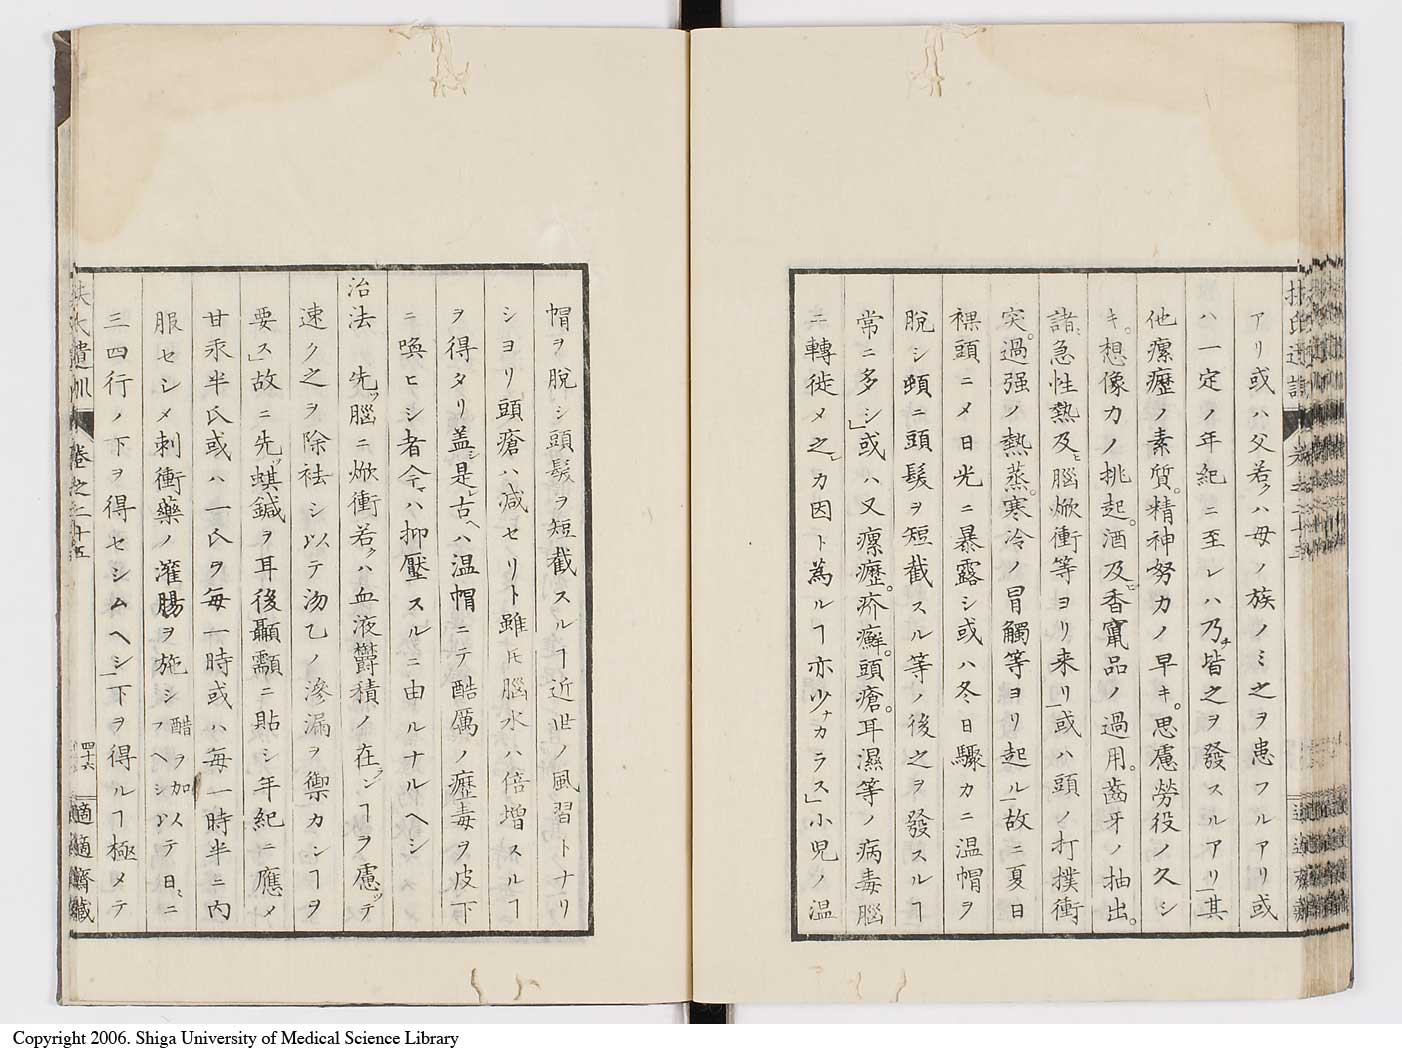 アリ或ハ父若クハ母ノ族ノミ之ヲ患フルアリ或
ハ一定ノ年紀ニ至レハ乃チ皆之ヲ發スルアリ」其
他瘰癧ノ素質。精神努力ノ早キ。思慮勞役ノ久シ
キ。想像力ノ挑起。酒及ヒ香竄品ノ過用。齒牙ノ抽出。
諸急性熱及ヒ腦焮衝等ヨリ来リ」或ハ頭ノ打撲衝
突。過强ノ熱蒸。寒冷ノ冒觸等ヨリ起ル」故ニ夏日
裸頭ニメ日光ニ暴露シ或ハ冬日驟カニ温帽ヲ
脫シ頓ニ頭髮ヲ短截スル等ノ後之ヲ發スルヿ
常ニ多シ」或ハ又瘰癧。疥癬。頭瘡。耳濕等ノ病毒腦
ニ轉徙メ之レカ因ト為ルヿ亦少ナカラス」小児ノ温
帽ヲ脫シ頭髮ヲ短截スルヿ近世ノ風習トナリ
シヨリ頭瘡ハ減セリト雖𪜈腦水ハ倍增スルヿ
ヲ得タリ盖シ是レ古ヘハ温帽ニテ酷厲ノ癧毒ヲ皮下
ニ喚ヒシ者今マハ抑壓スルニ由ルナルヘシ
治法 先ツ腦ニ焮衝若クハ血液欝積ノ在ランヿヲ慮ツテ
速ク之ヲ除祛シ以テ沕乙ノ滲漏ヲ禦カンヿヲ
要ス」故ニ先ツ蜞鍼ヲ耳後顳顬ニ貼シ年紀ニ應メ
甘汞半氏或ハ一氏ヲ每一時或ハ每一時半ニ内
服セシメ刺衝藥ノ灌腸ヲ施シ醋ヲ加フヘシ以テ日ニ
三四行ノ下ヲ得セシムヘシ」下ヲ得ルヿ極メテ
扶氏遺訓 卷之二十五 四十六 適適齋藏
Copyright 2006. Shiga University of Medical Science Library